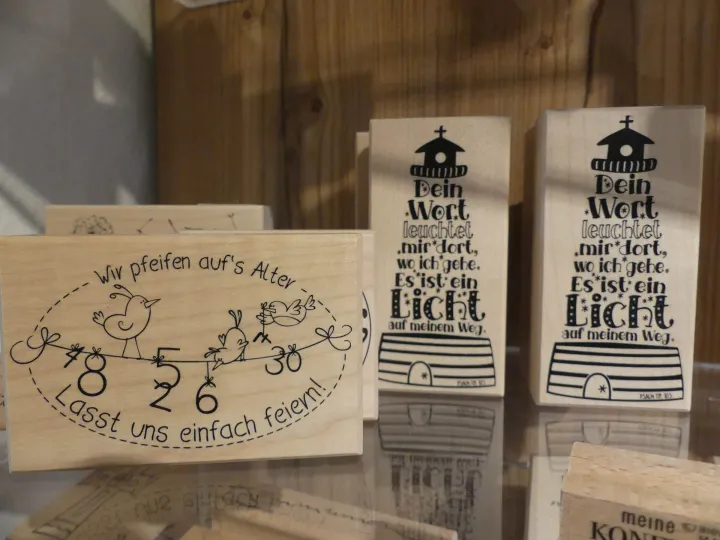 Wir pfeifen auf's Alter
4 8 5 2 6 1 30
Lasst uns einfach feiern!
Dein
Wort
leuchtet
mir dort,
wo ich gehe.
Es ist ein
Licht
auf meinem Weg.
Dein
Wort
leuchtet
mir dort,
wo ich gehe.
Es ist ein
Licht
auf meinem Weg.
meine